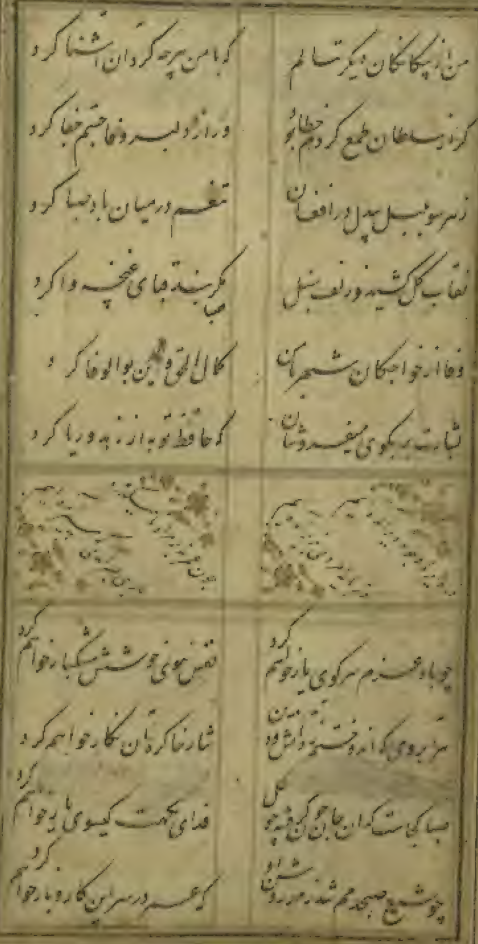 من از بیگانگان دیگر ننالم
که با من هر چه کرد آن آشنا کرد
گر از سلطان طمع کردم خطا بود
ور از دلبر وفا جستم جفا کرد
ز هر سو بلبل بیدل در افغان
تنعم در میان باد صبا کرد
نقاب گل کشید و زلف سنبل
گره بند قبای غنچه وا کرد
وفا از خواجگان شهر با من
کمال الحق و الدین بوالوفا کرد
بشارت بر بکوی میفروشان
که حافظ توبه از زهد و ریا کرد
چو باد عزم سر کوی یار خواهم کرد
نفس ببوی خوشش مشکبار خواهم کرد
هر آبروی که اندوختم ز دانش و دین
نثار خاک ره آن نگار خواهم کرد
صبا کجاست که این جان خون گرفته چو گل
فدای نکهت گیسوی یار خواهم کرد
چو شمع صبحدمم شد ز مهر او روشن
که عمر در سر این کار و بار خواهم کرد